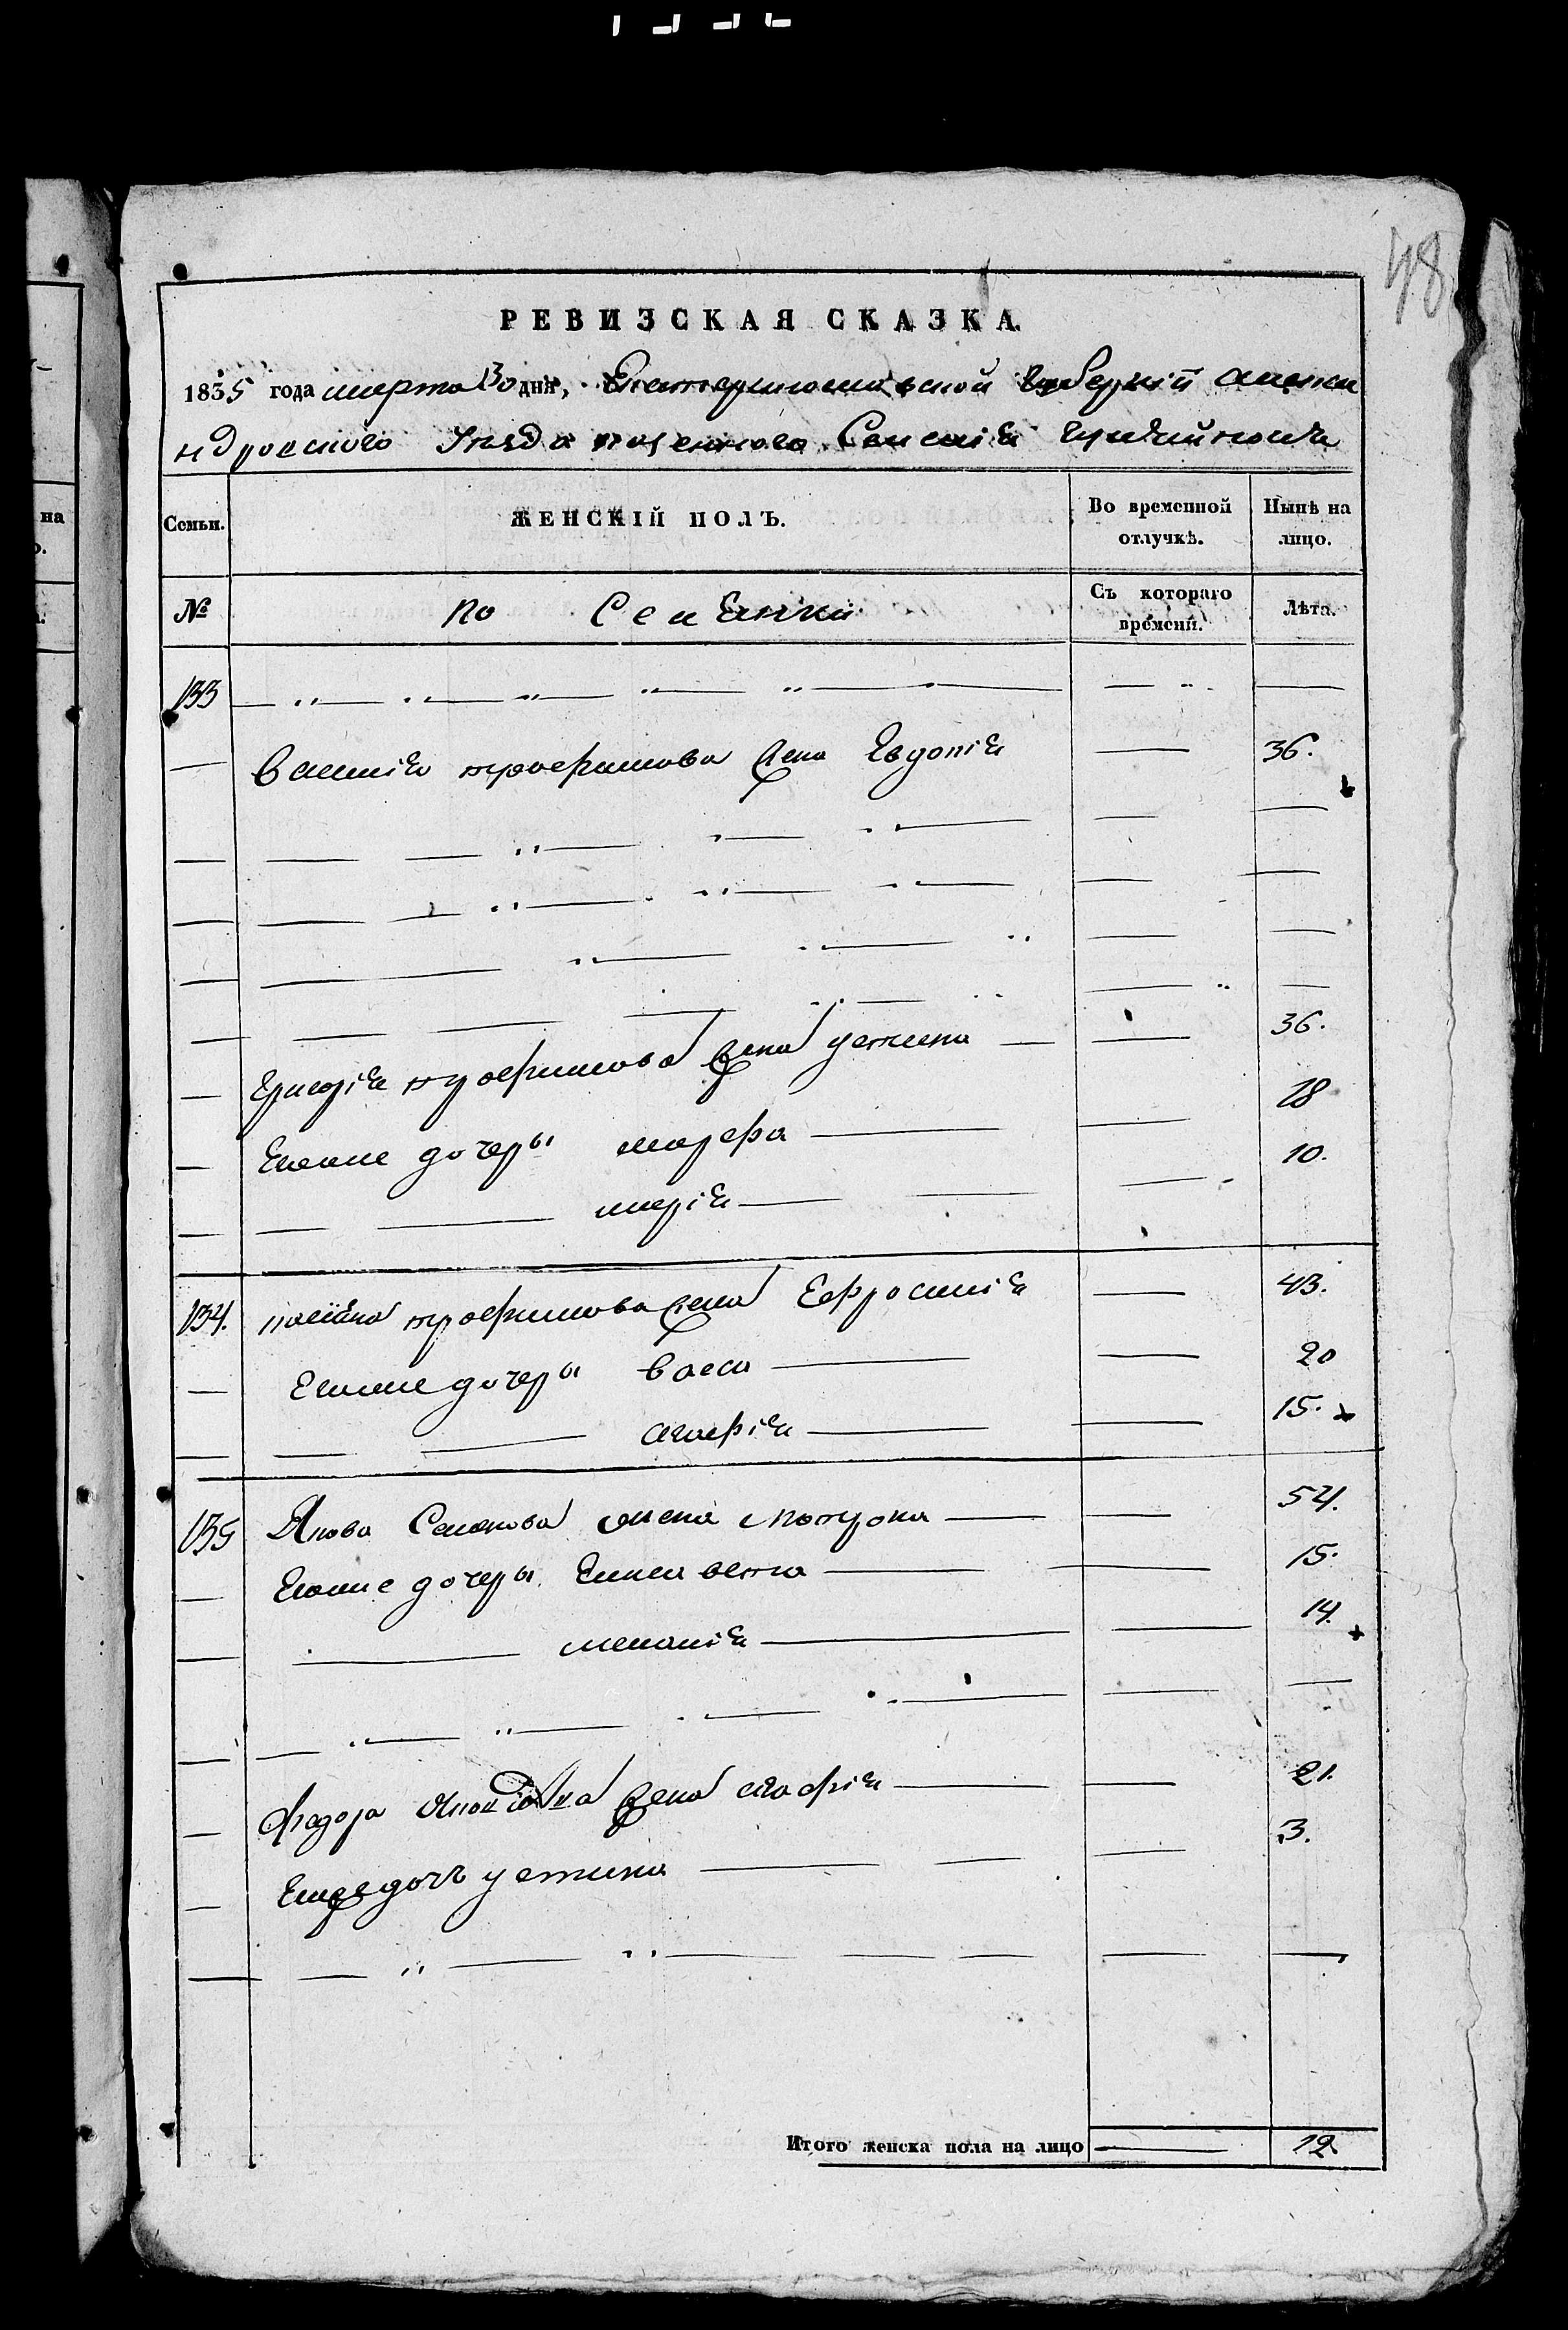 48
РЕВИЗСКАЯ СКАЗКА.
1835 года марта 30 дня, Екатеринославской Губернии Алекса
ндровского уезда казенного Селения
Семьи. ЖЕНСКІЙ ПОЛЪ. Во временной отлучкѣ. Нынѣ на лицо.
№ по Селянки Съ котораго времени. Лѣта.
133
Василія трофимова жена Евдокія 36.
Григорія трофимова жена устина 36.
Егоже дочеры марфа 18
марія 10.
134. трофимова жена Ефросинія 43.
Егоже дочеры васса 20
агафія 15.
135 Якова Семенова жена матрона 54.
Егоже дочеры Елисавета 15.
меланія 14.
федора жена агафія 21.
Еяже дочь устина 3.
Итого женска пола на лицо 12.
на